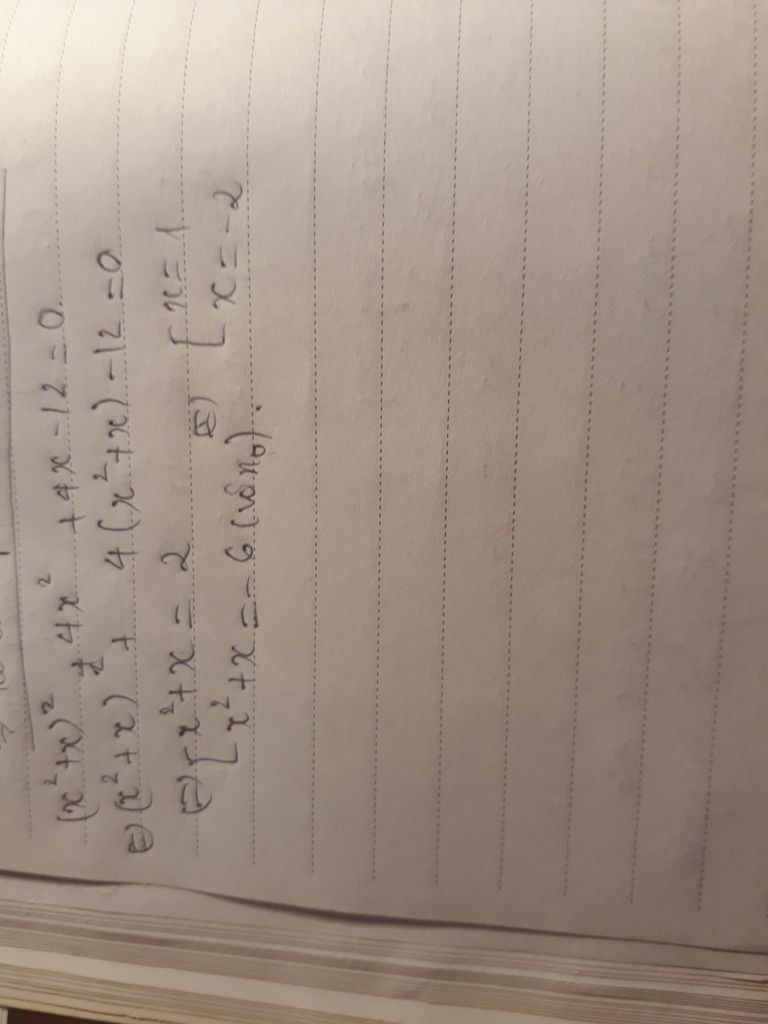 (x²+x)² + 4x² + 4x - 12 = 0
⇔ (x²+x)² + 4(x²+x) - 12 = 0
⇔ [ x²+x = 2 ⇔ [ x = 1
[ x²+x = -6 (vô no). [ x = -2